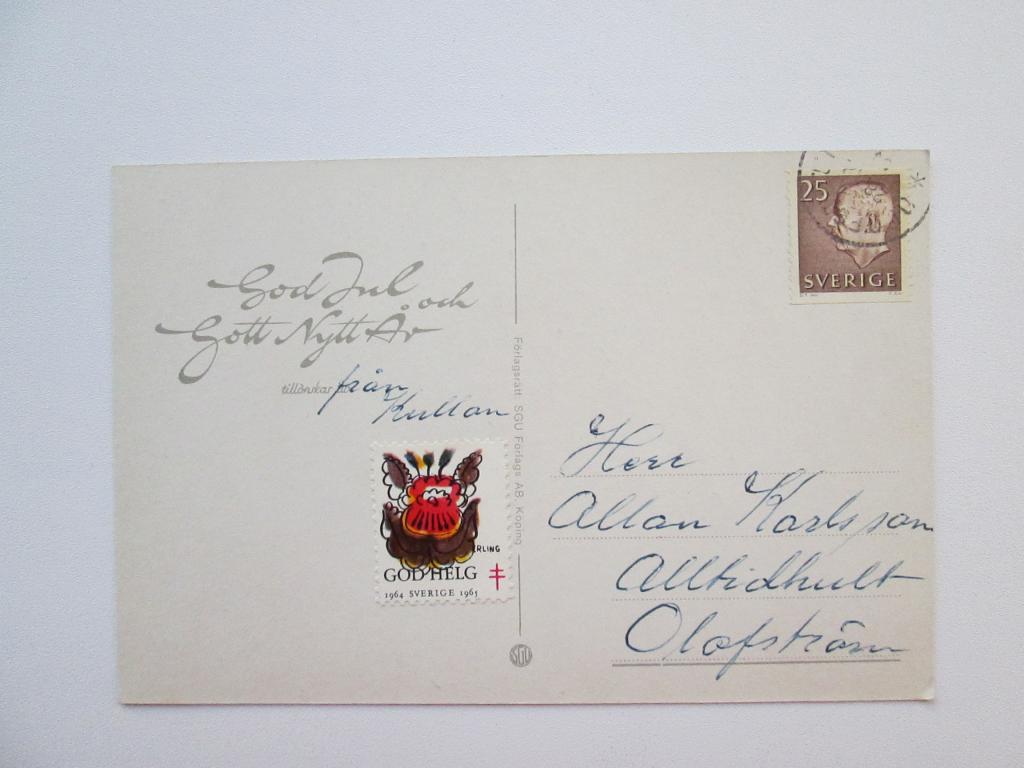 God Jul
och
Gott Nytt År
tillönskar
från
Kullan
ERLING
GOD HELG
1964 SVERIGE 1965
Förlagsrätt SGU Förlags AB, Köping
SGU
25
SVERIGE
Herr
Allan Karlsson
Alltidhult
Olofström